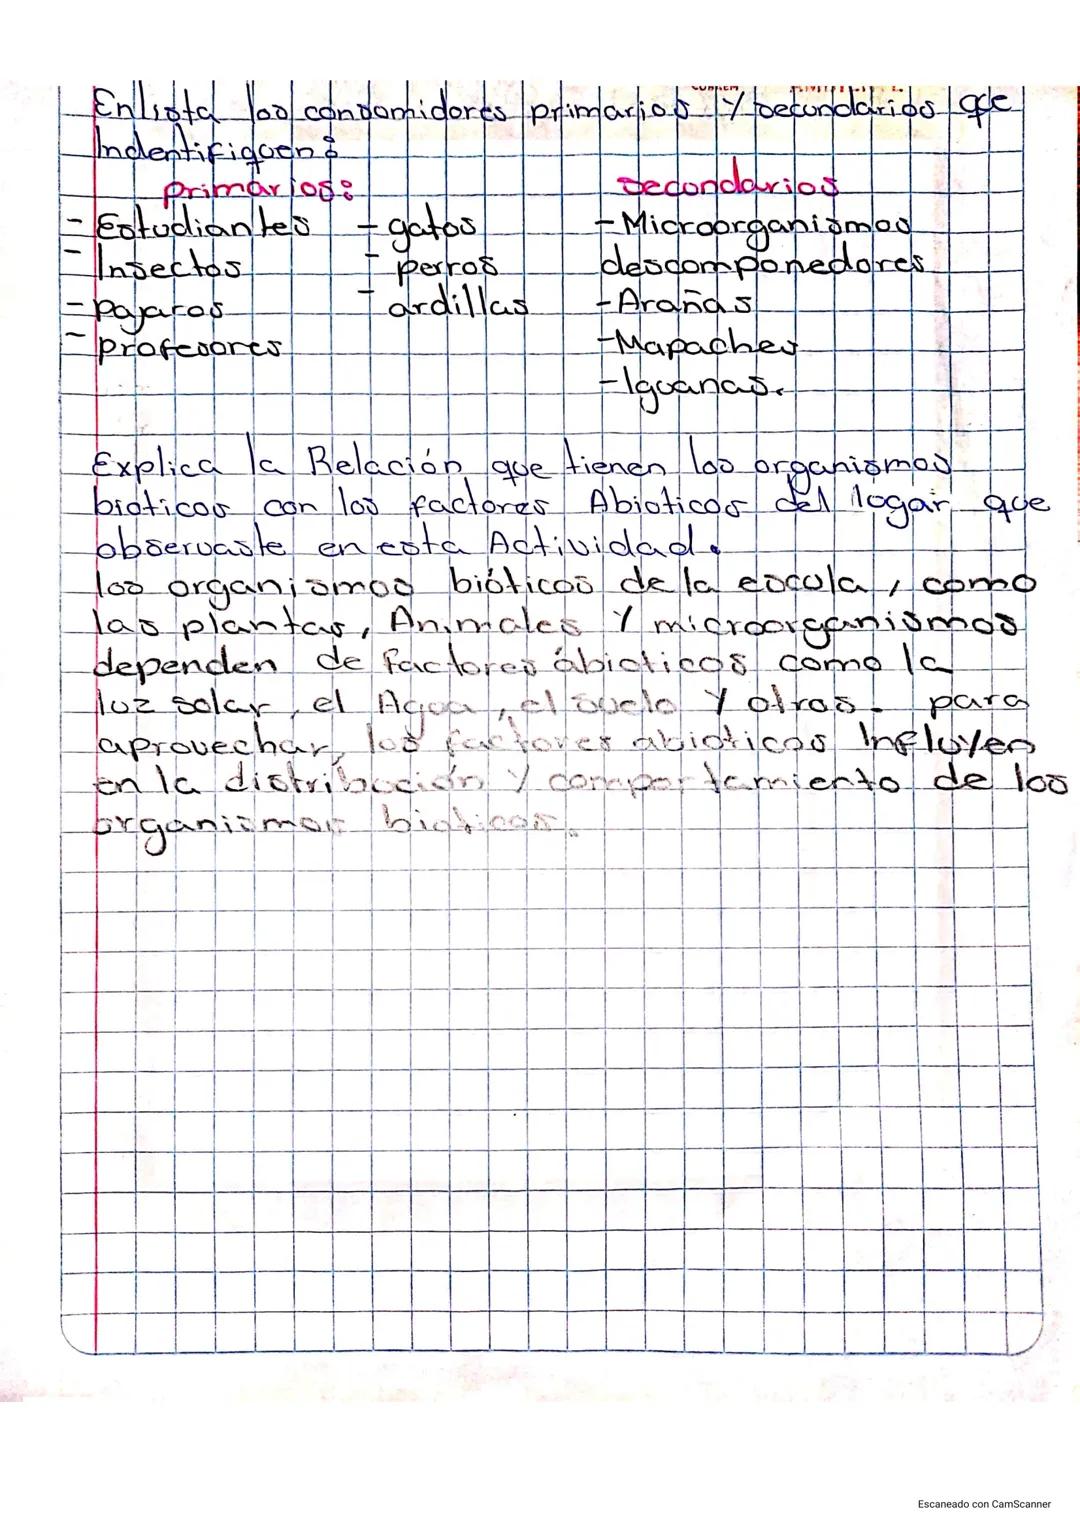 Enlista los consumidores primarios y secundarios que
Indentifiquen:
primarios:
- Estudiantes
- Insectos
- Pajaros
- Profesores
- gatos
- perros
- ardillas
secundarios
- Microorganismos
descomponedores
- Arañas
- Mapaches
- Iguanas.
Explica la Relación que tienen los organismos
bioticos con los factores Abioticos del lugar que
observaste en esta Actividad.
los organismos bióticos de la escula, como
las plantas, Animales y microorganismos
dependen de factores ábioticos como la
luz solar, el Agua, el suelo y otros. para
aprovechar, los factores abioticos Influyen
en la distribución y comportamiento de los
organismos bioticos.
Escaneado con CamScanner